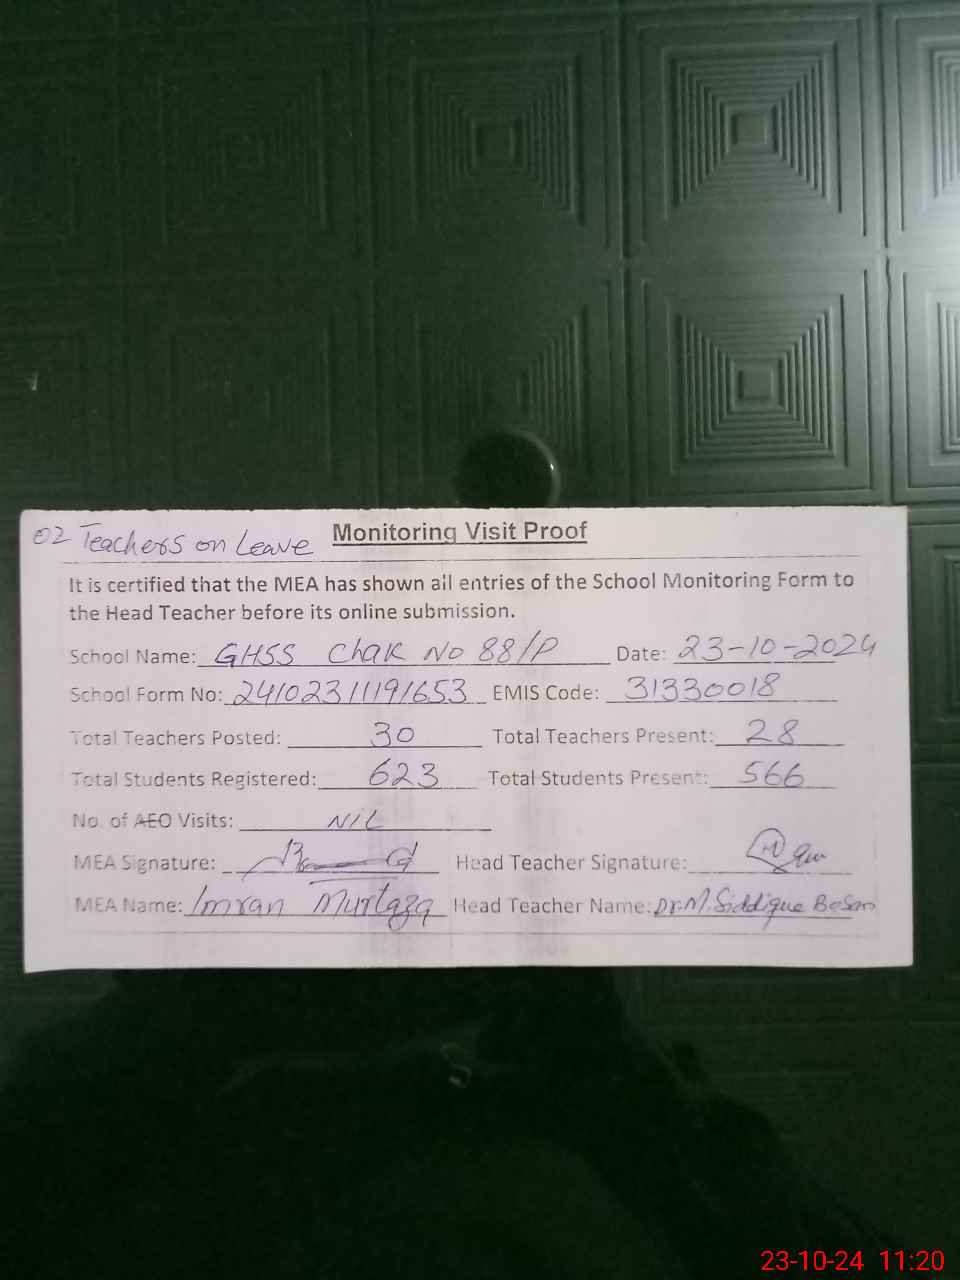 02 Teachers on Leave Monitoring Visit Proof
It is certified that the MEA has shown all entries of the School Monitoring Form to
the Head Teacher before its online submission.
School Name: GHSS Chak No 88/P Date: 23-10-2024
School Form No: 24102311191653 EMIS Code: 31330018
Total Teachers Posted: 30 Total Teachers Present: 28
Total Students Registered: 623 Total Students Present: 566
No. of AEO Visits: NIL
MEA Signature: Head Teacher Signature:
MEA Name: Imran Murtaza Head Teacher Name: Dr. M. Siddique
23-10-24 11:20